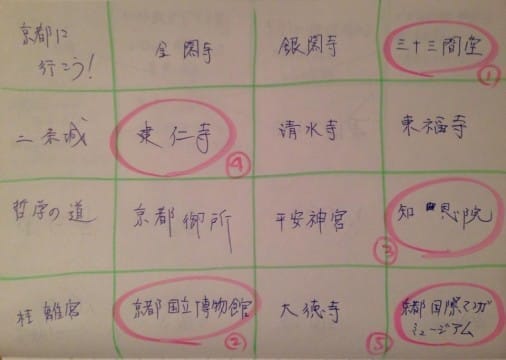 京都に
行こう!
金閣寺
銀閣寺
三十三間堂
①
二条城
建仁寺
④
清水寺
東福寺
哲学の道
京都御所
平安神宮
③
知恩院
桂離宮
京都国立博物館
②
大徳寺
⑤
京都国際マンガ
ミュージアム